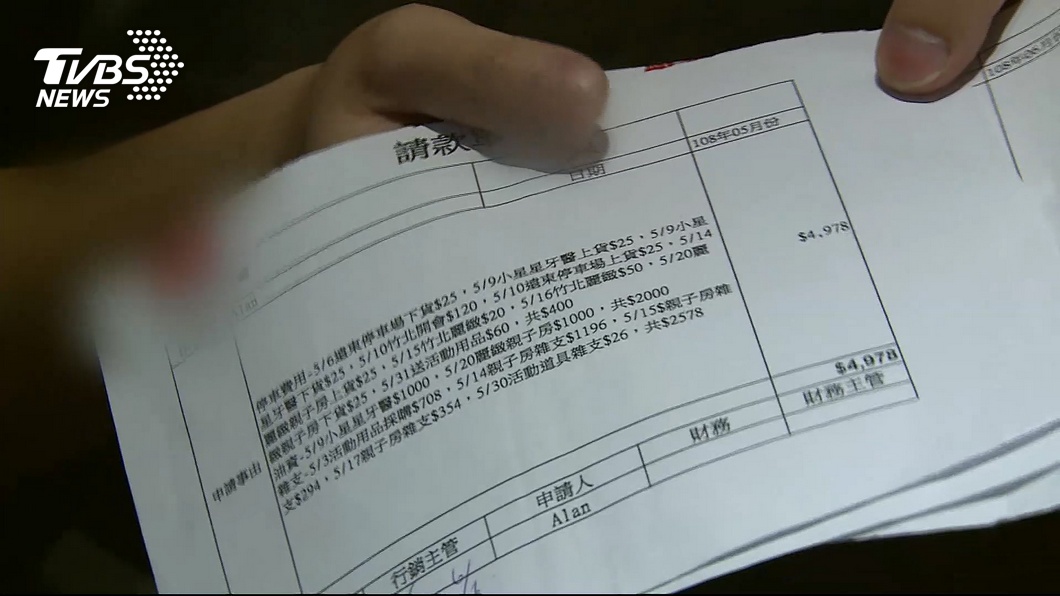 TVBS
NEWS
請款
日期
108年05月份
108年06月份
停車費用-5/6遠東停車場下貨$25、5/9小星星牙醫上貨$25、5/9小星
星牙醫下貨$25、5/10竹北開會$120、5/10遠東停車場上貨$25、5/14
麗緻親子房上貨$25、5/15竹北麗緻$20、5/16竹北麗緻$50、5/20麗
緻親子房下貨$25、5/31送活動用品$60，共$400
油資-5/9小星星牙醫$1000、5/20麗緻親子房$1000，共$2000
雜支-5/3活動用品採購$708、5/14親子房雜支$1196、5/15$親子房雜
支$294、5/17親子房雜支$354、5/30活動道具雜支$26，共$2578
$4,978
申請事由
$4,978
行銷主管
申請人
財務
財務主管
Alan